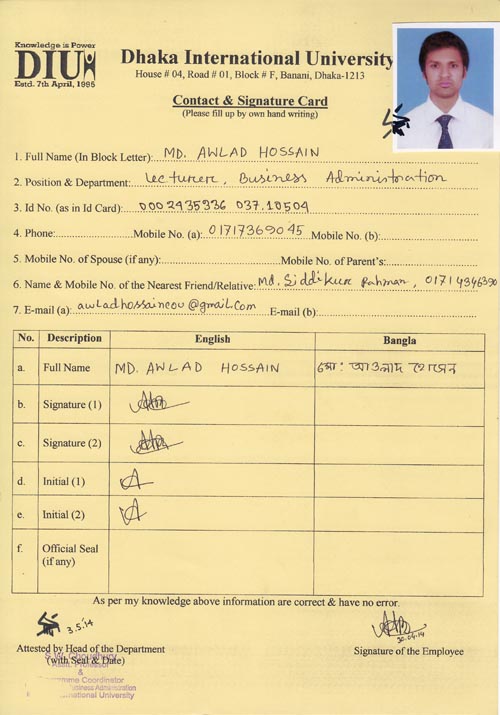 Knowledge is Power
DIU
Estd. 7th April, 1995
Dhaka International University
House # 04, Road # 01, Block # F, Banani, Dhaka-1213
Contact & Signature Card
(Please fill up by own hand writing)
1. Full Name (In Block Letter): MD. AWLAD HOSSAIN
2. Position & Department: Lecturer, Business Administration
3. Id No. (as in Id Card): 0002435336 037.10504
4. Phone: Mobile No. (a): 01717369045 Mobile No. (b):
5. Mobile No. of Spouse (if any): Mobile No. of Parent's:
6. Name & Mobile No. of the Nearest Friend/Relative: Md. Siddikur Rahman, 01714346390
7. E-mail (a): awladhossaincou@gmail.com E-mail (b):
No. Description English Bangla
a. Full Name MD. AWLAD HOSSAIN মো: আওলাদ হোসেন
b. Signature (1)
c. Signature (2)
d. Initial (1)
e. Initial (2)
f. Official Seal (if any)
As per my knowledge above information are correct & have no error.
3.5.14
30.04.14
Attested by Head of the Department
(with Seal & Date)
Signature of the Employee
S.W. Choudhury
Asstt. Professor
&
Programme Coordinator
Business Administration
International University